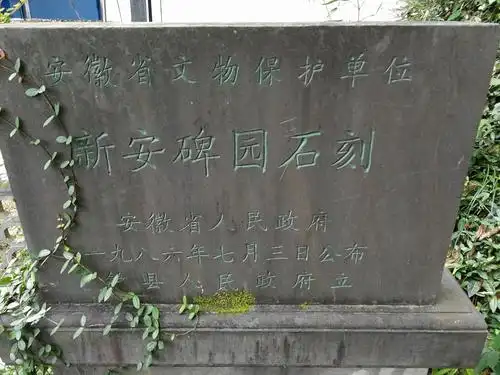 安徽省文物保护单位
新安碑园石刻
安徽省人民政府
一九八六年七月三日公布
歙县人民政府立